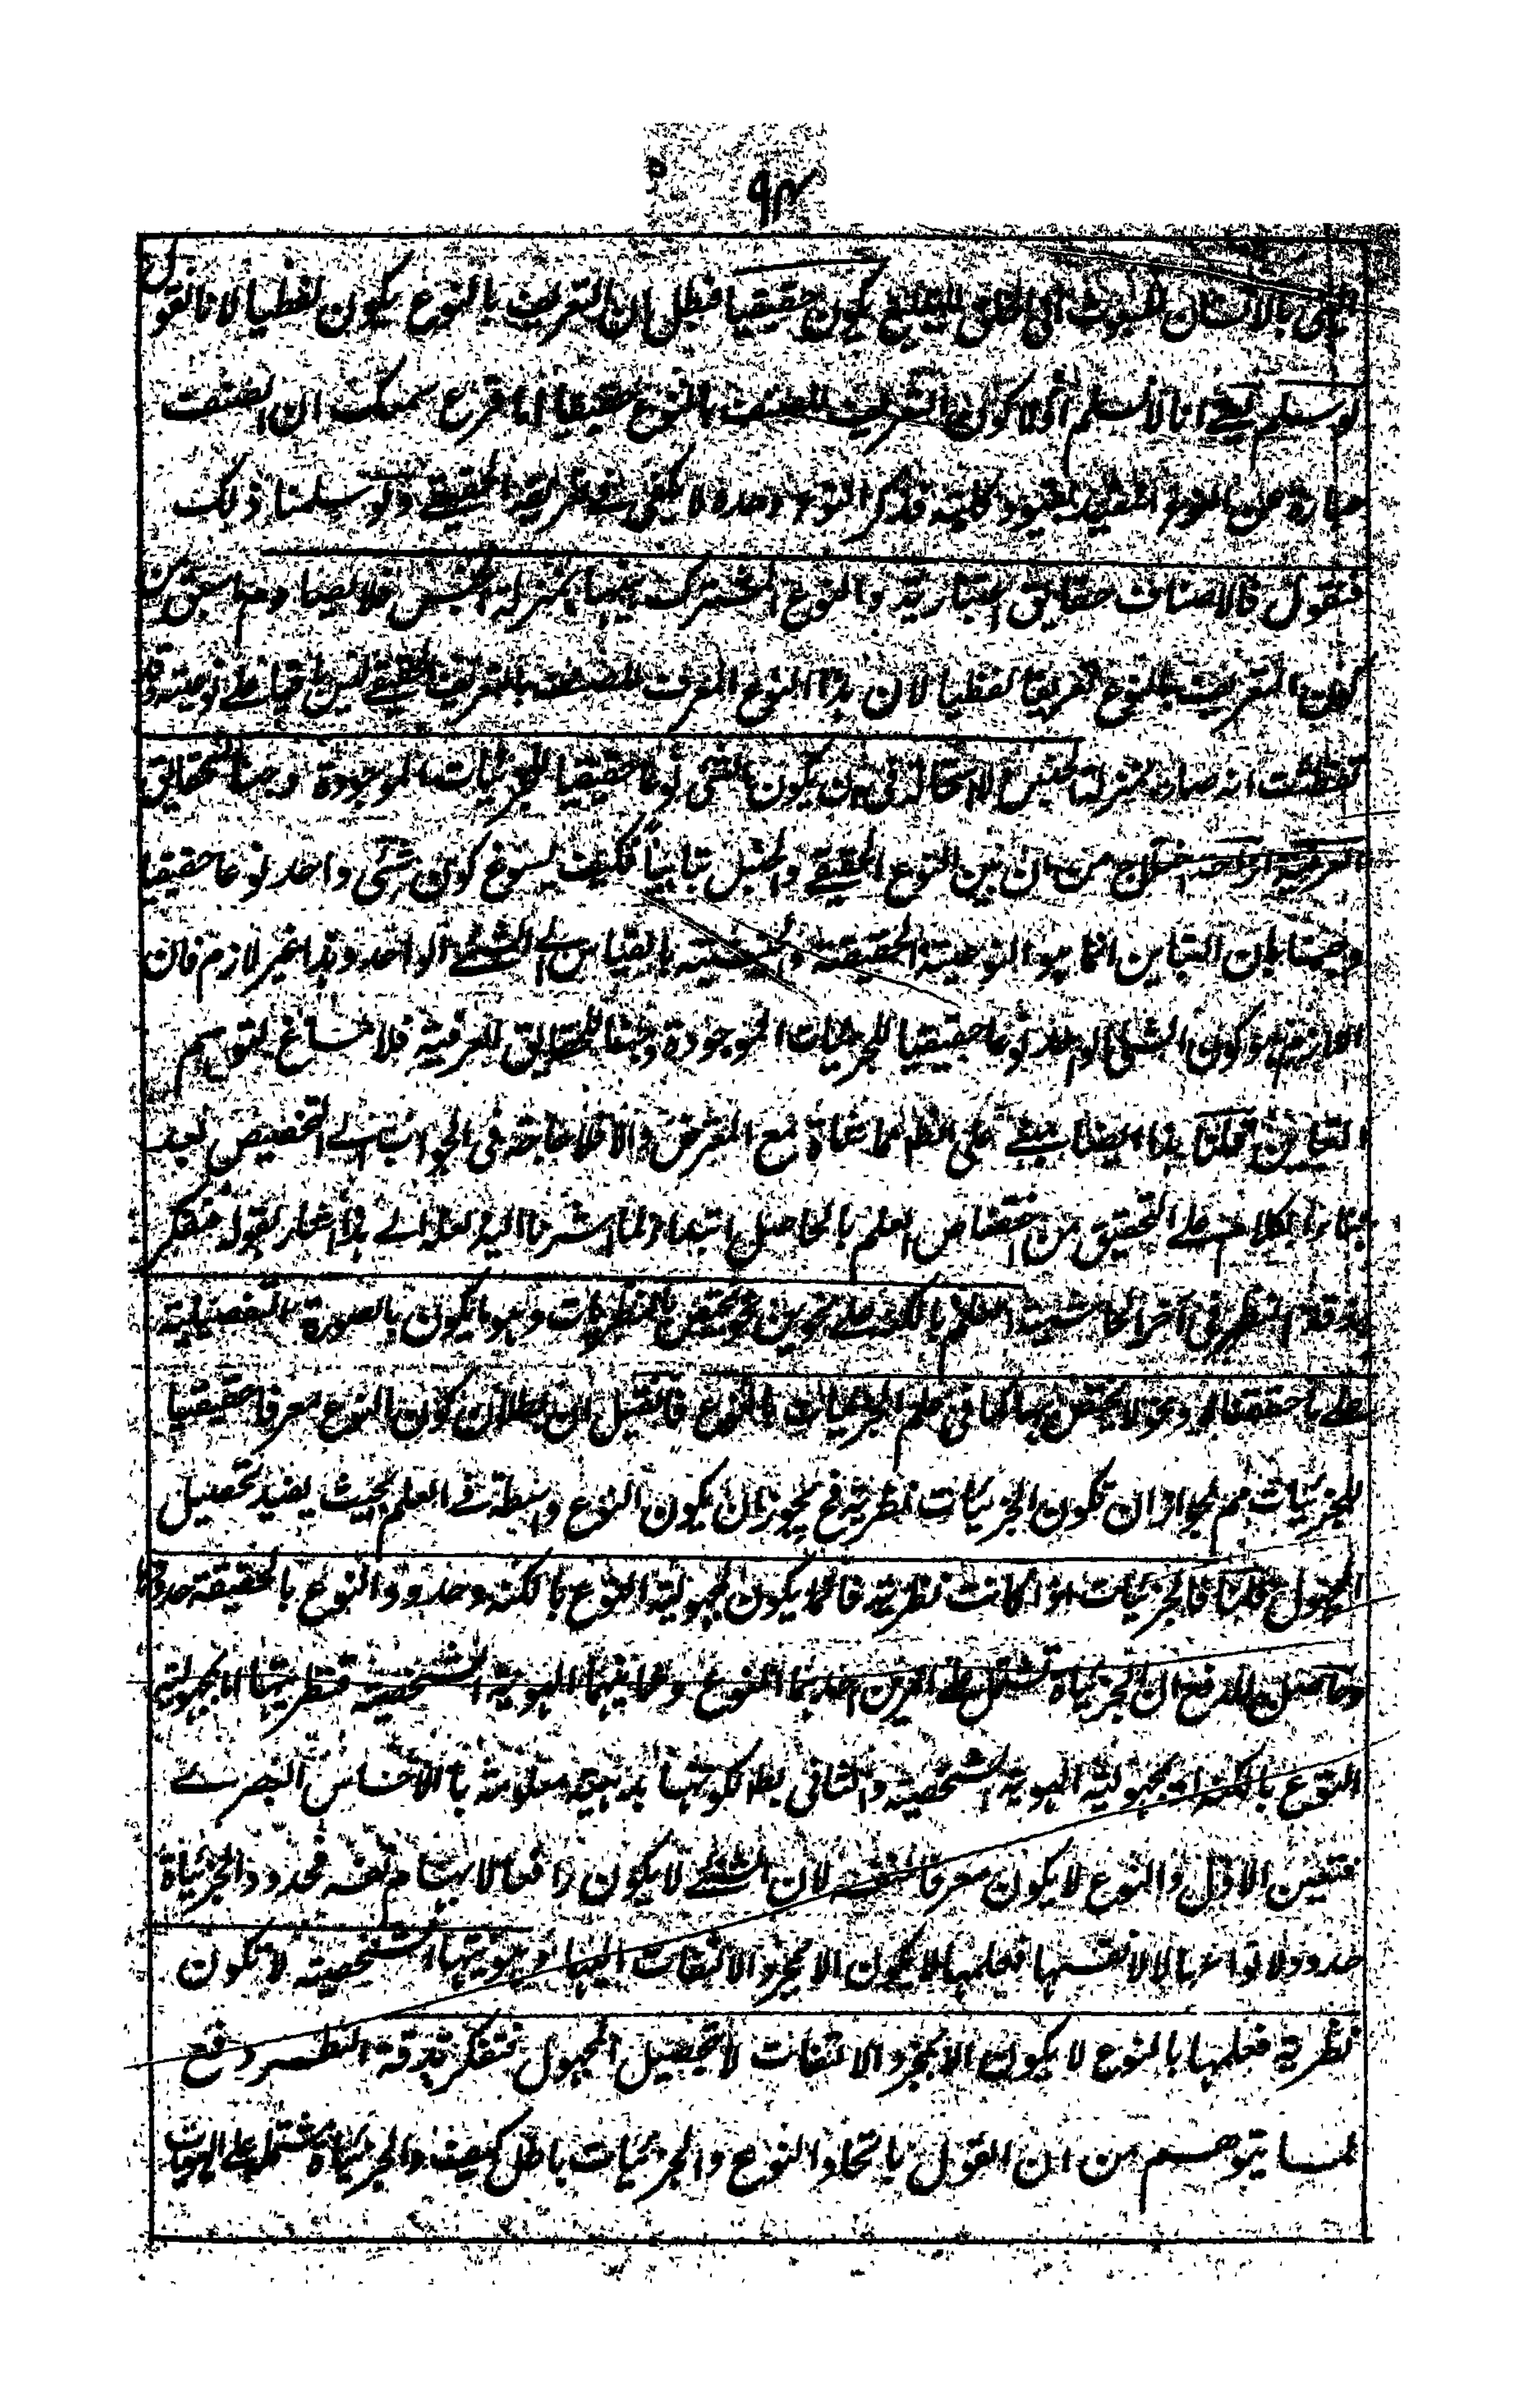 ٩٣
النبى بالانسان المبعوث الى الخلق للتبليغ يكون حقيقيا فبطل ان التعريف بالنوع يكون لفظيا لانا نقول
لو سلم يعنى انا لا نسلم اولا كون التعريف للصنف بالنوع حقيقيا اما قرع سمعك ان الصنف
عبارة عن النوع المقيد بقيود كلية فذكر النوع وحده لا يكفى فى تعريفه الحقيقى ولو سلمنا ذلك
فنقول فالاصناف حقايق اعتبارية والنوع المشترك بينها بمنزلة الجنس فلا يصادم ما سبق من
كون التعريف بالنوع تعريفا لفظيا لان هذا النوع المعرف للصنف بالتعريف الحقيقى ليس باقيا على نوعيته وقد
تفطنت انه صار بمنزلة الجنس لا استحالة فى ان يكون الشئ نوعا حقيقيا للجزئيات الموجودة وجنسا للحقايق
العرفية ازاحة من ان بين النوع الحقيقى والجنس تباينا فكيف يسوغ كون شئ واحد نوعا حقيقيا
وجنسا بان التباين انما هو النوعية الحقيقة والجنسية بالقياس الى الشئ الواحد وهذا غير لازم فان
اللازم هو كون الشئ الواحد نوعا حقيقيا للجزئيات الموجودة وجنسا للحقايق العرفية فلا مساغ لتوهم
التباين قلنا هذا ايضا مبنى على المماشاة مع المعترض والا فلا حاجة فى الجواب الى التخصيص بعد
بناء الكلام على التحقيق من اختصاص العلم بالحاصل ابتداء ولما اشرنا اليه لعله الى هذا اشار بقوله فتفكر
بدقة النظر فى آخر الحاشية العلم بالكنه على نحوين نحو يختص بالنظريات وهو ما يكون بالصورة التفصيلية
على ما حققنا ونحو لا يختص بها كما فى علم الجزئيات بالنوع فان قيل ان بطلان كون النوع معرفا حقيقيا
للجزئيات مم لجواز ان تكون الجزئيات نظرية فح يجوز ان يكون النوع واسطة فى العلم بحيث يفيد تحصيل
المجهول قلنا فالجزئيات اذا كانت نظرية فانما يكون لمجهولية النوع بالكنه وحدود النوع بالحقيقة حدودها
وحاصل الدفع ان الجزئيات تشتمل على امرين احدهما النوع وثانيهما الهوية الشخصية فنظريتها اما لمجهولية
النوع بالكنه او لمجهولية الهوية الشخصية والثانى بط لكونها بديهية معلومة بالاحساس البصرى
فتعين الاول والنوع لا يكون معرفا لنفسه لان الشئ لا يكون رافعا لابهام نفسه فحدود الجزئيات
حدود لانواعها لا لانفسها فعلمها لا يكون الا بمجرد الالتفات اليها وهويتها الشخصية لا تكون
نظرية فعلمها بالنوع لا يكون الا بمجرد الالتفات لا تحصيل المجهول فتفكر بدقة النظر دفع
لما يتوهم من ان القول باتحاد النوع والجزئيات باطل كيف والجزئيات مشتملة على الهويات